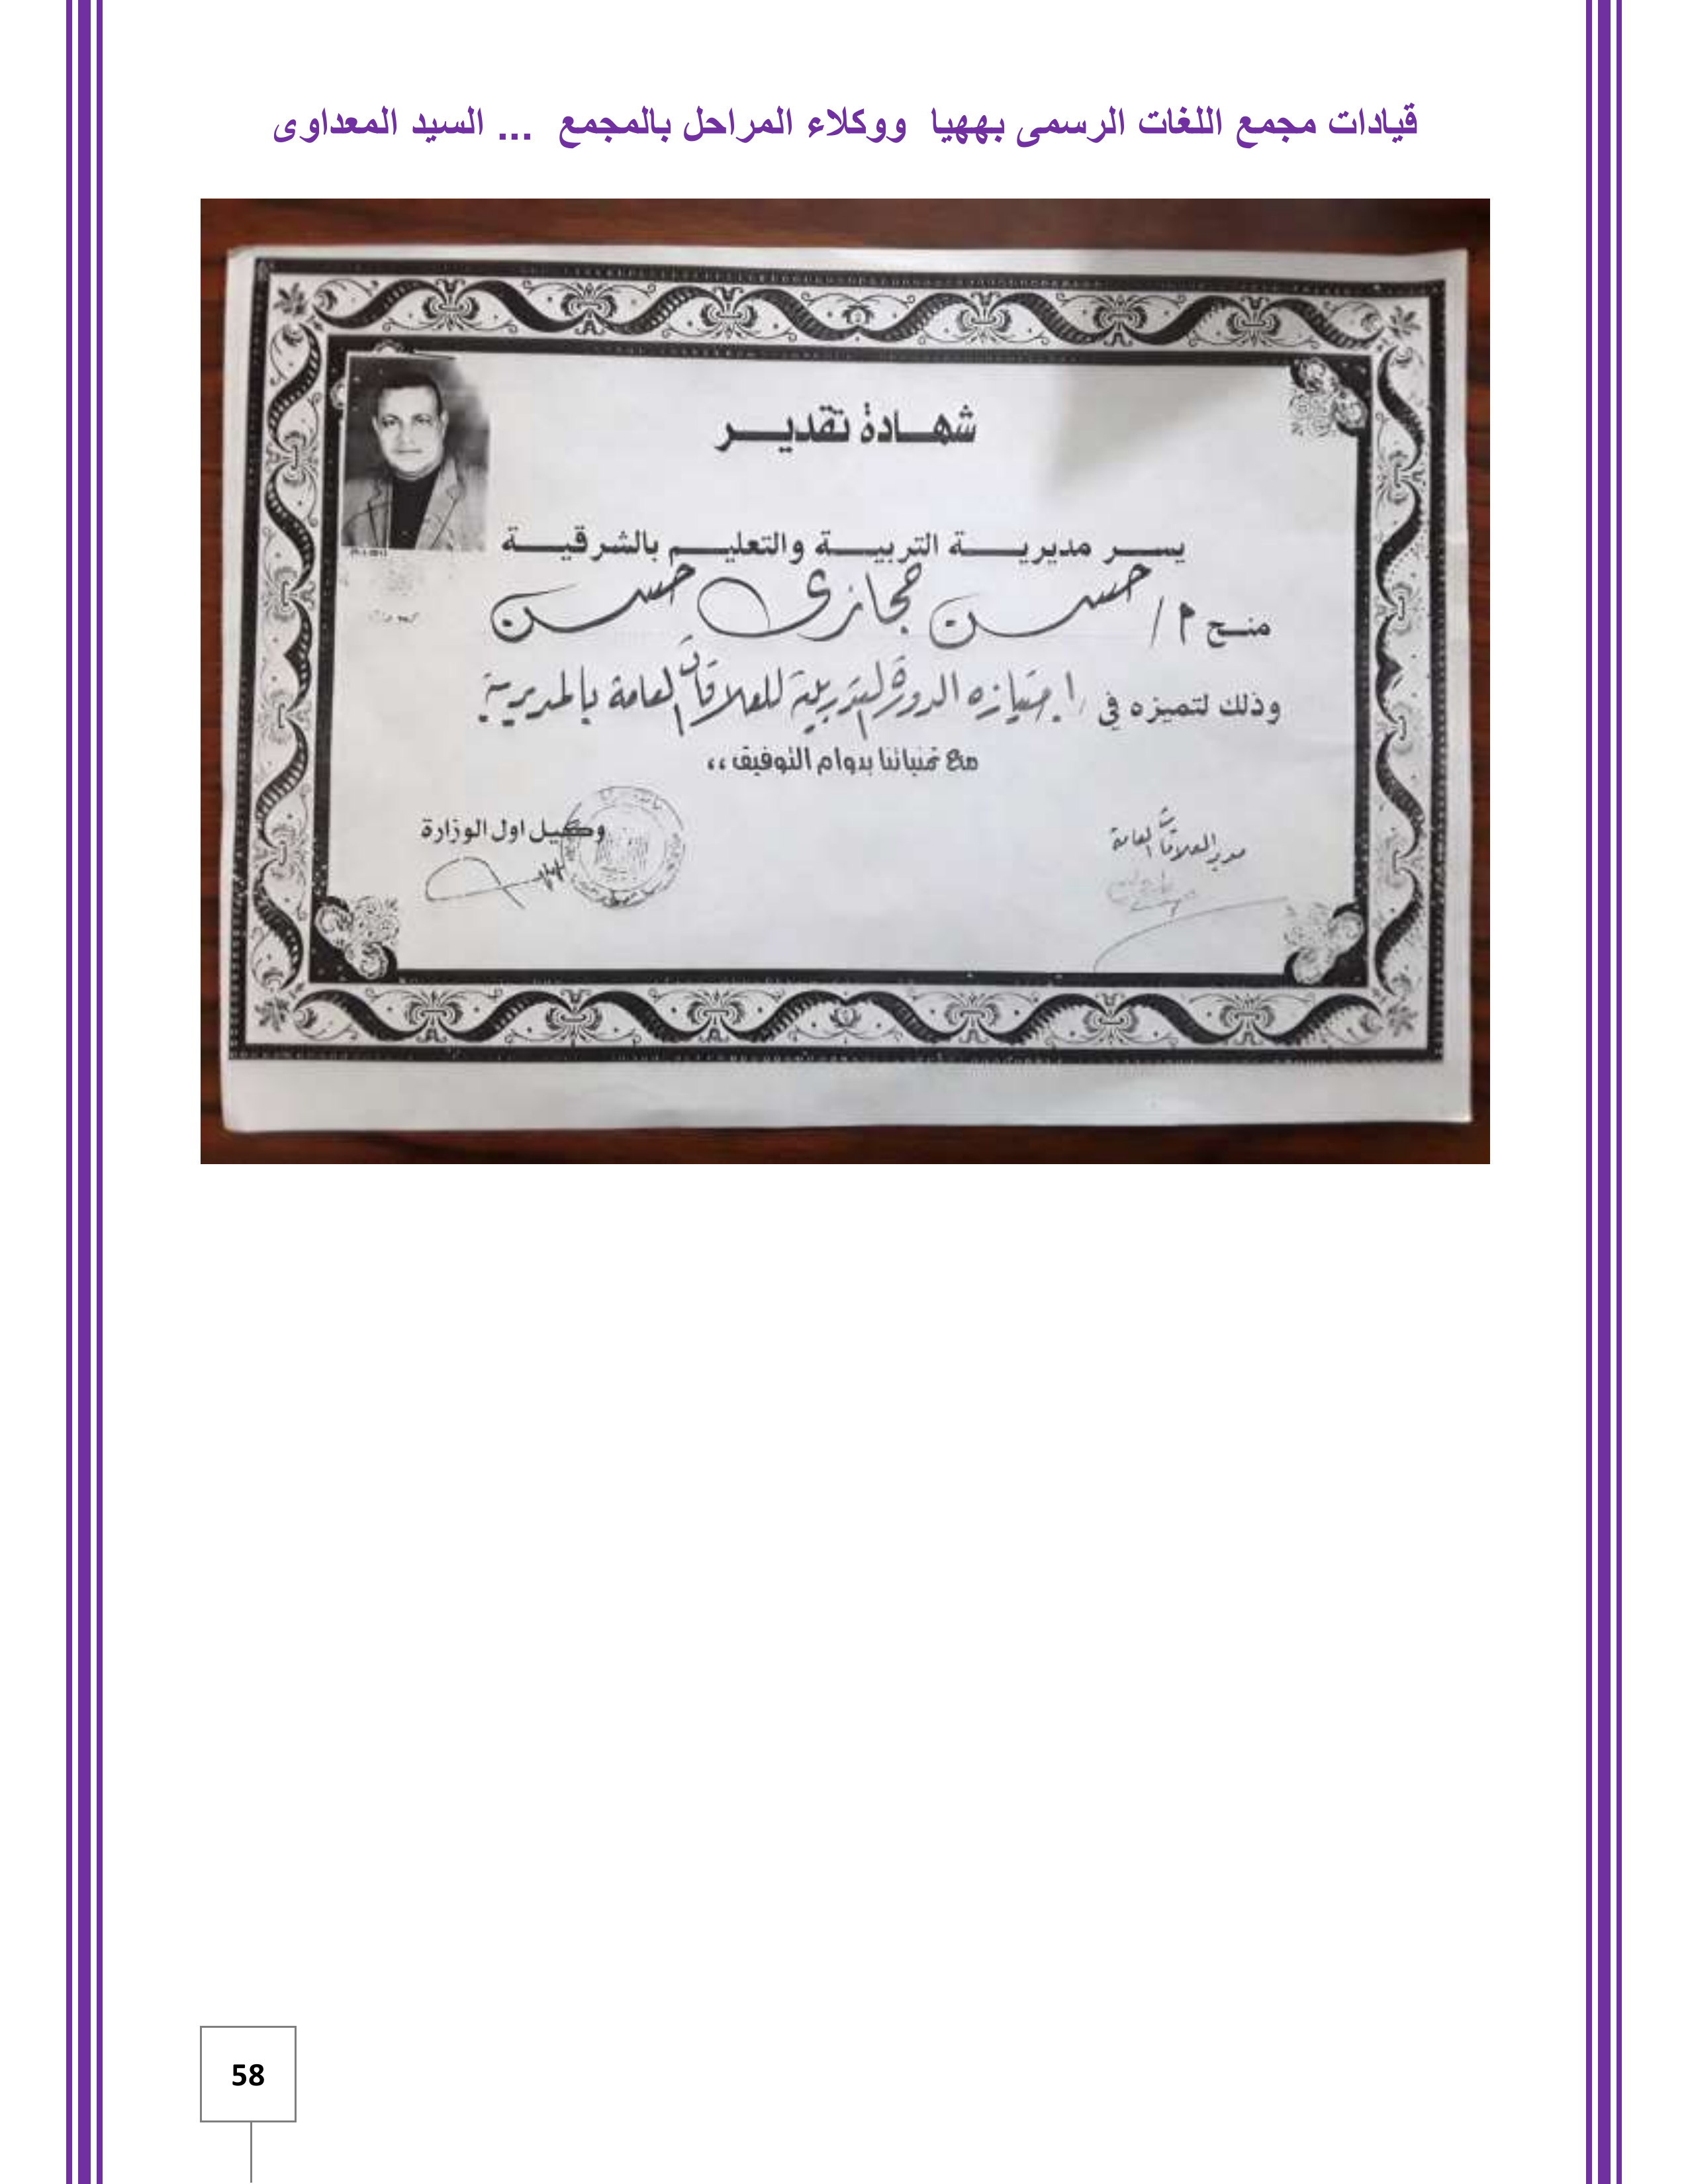 قيادات مجمع اللغات الرسمى بههيا ووكلاء المراحل بالمجمع ... السيد المعداوى
شهادة تقدير
يسر مديرية التربية والتعليم بالشرقية
منح م / حسن حجازى حسن
وذلك لتميزه في اجتيازه الدورة التدريبية للعلاقات العامة بالمديرية
مع تمنياتنا بدوام التوفيق ،،
مدير العلاقات العامة
وكيل اول الوزارة
58